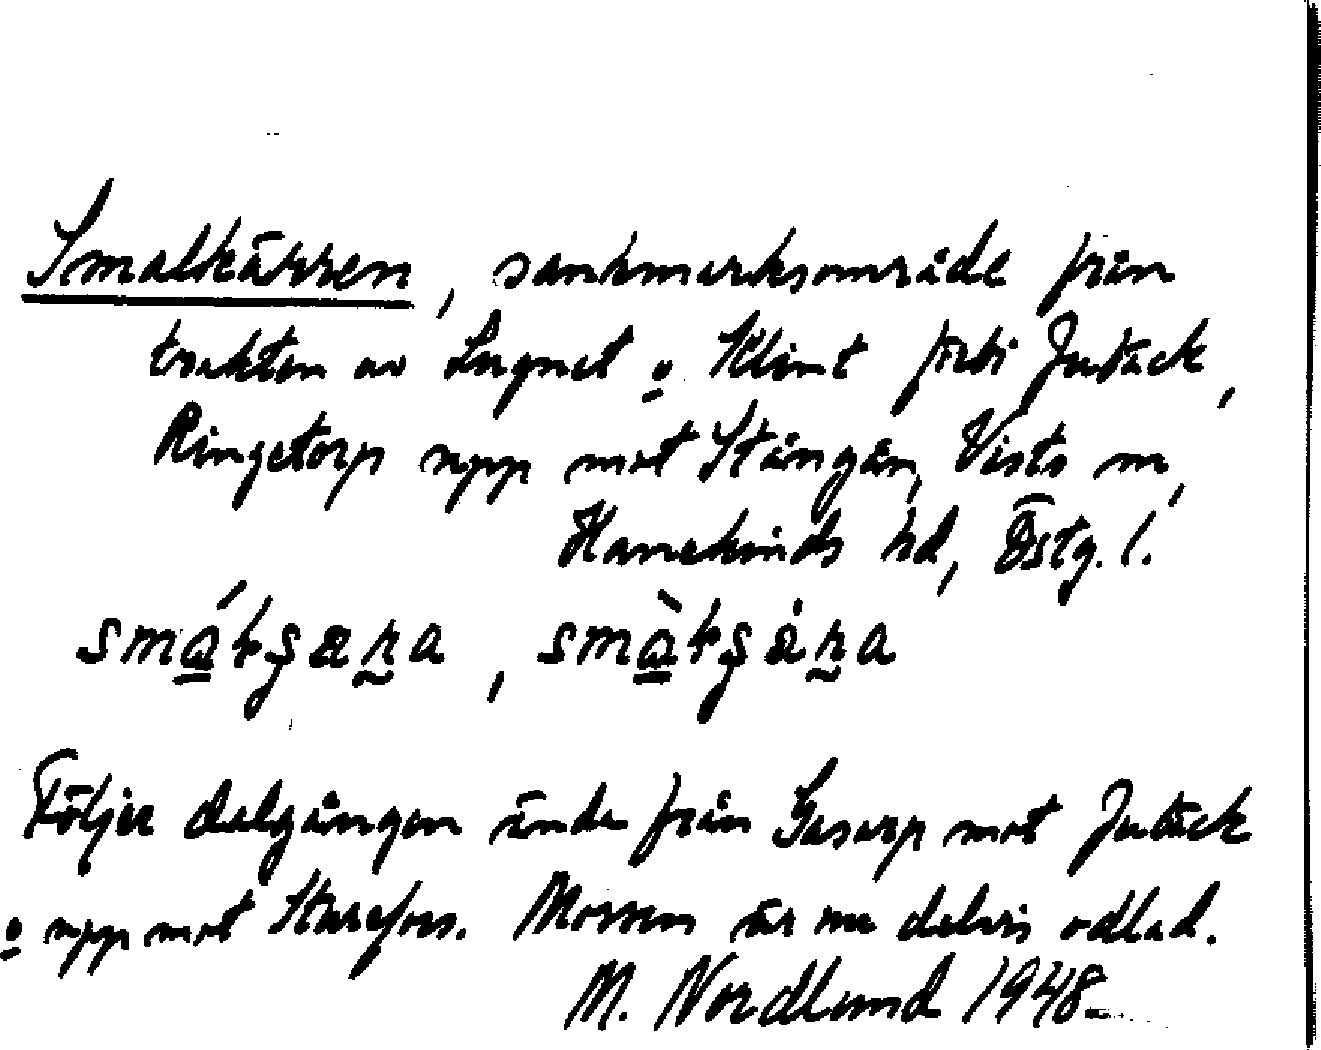 Smalkärren, sankmarksområde från
trakten av Lugnet o Klint förbi Jutäck,
Ringetorp upp mot Stångån, Vists sn,
Hanekinds hd, Östg. l.
Följer dalgången ända från Gaserp mot Jutäck
o upp mot Sturefors. Mossen är nu delvis odlad.
M. Nordlund 1948